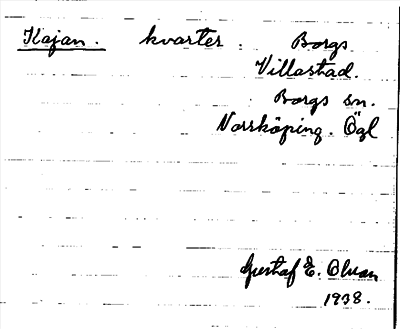 Kajan. kvarter. Borgs
Villastad.
Borgs sn.
Norrköping. Ögl
Gustaf E. Olson
1938.